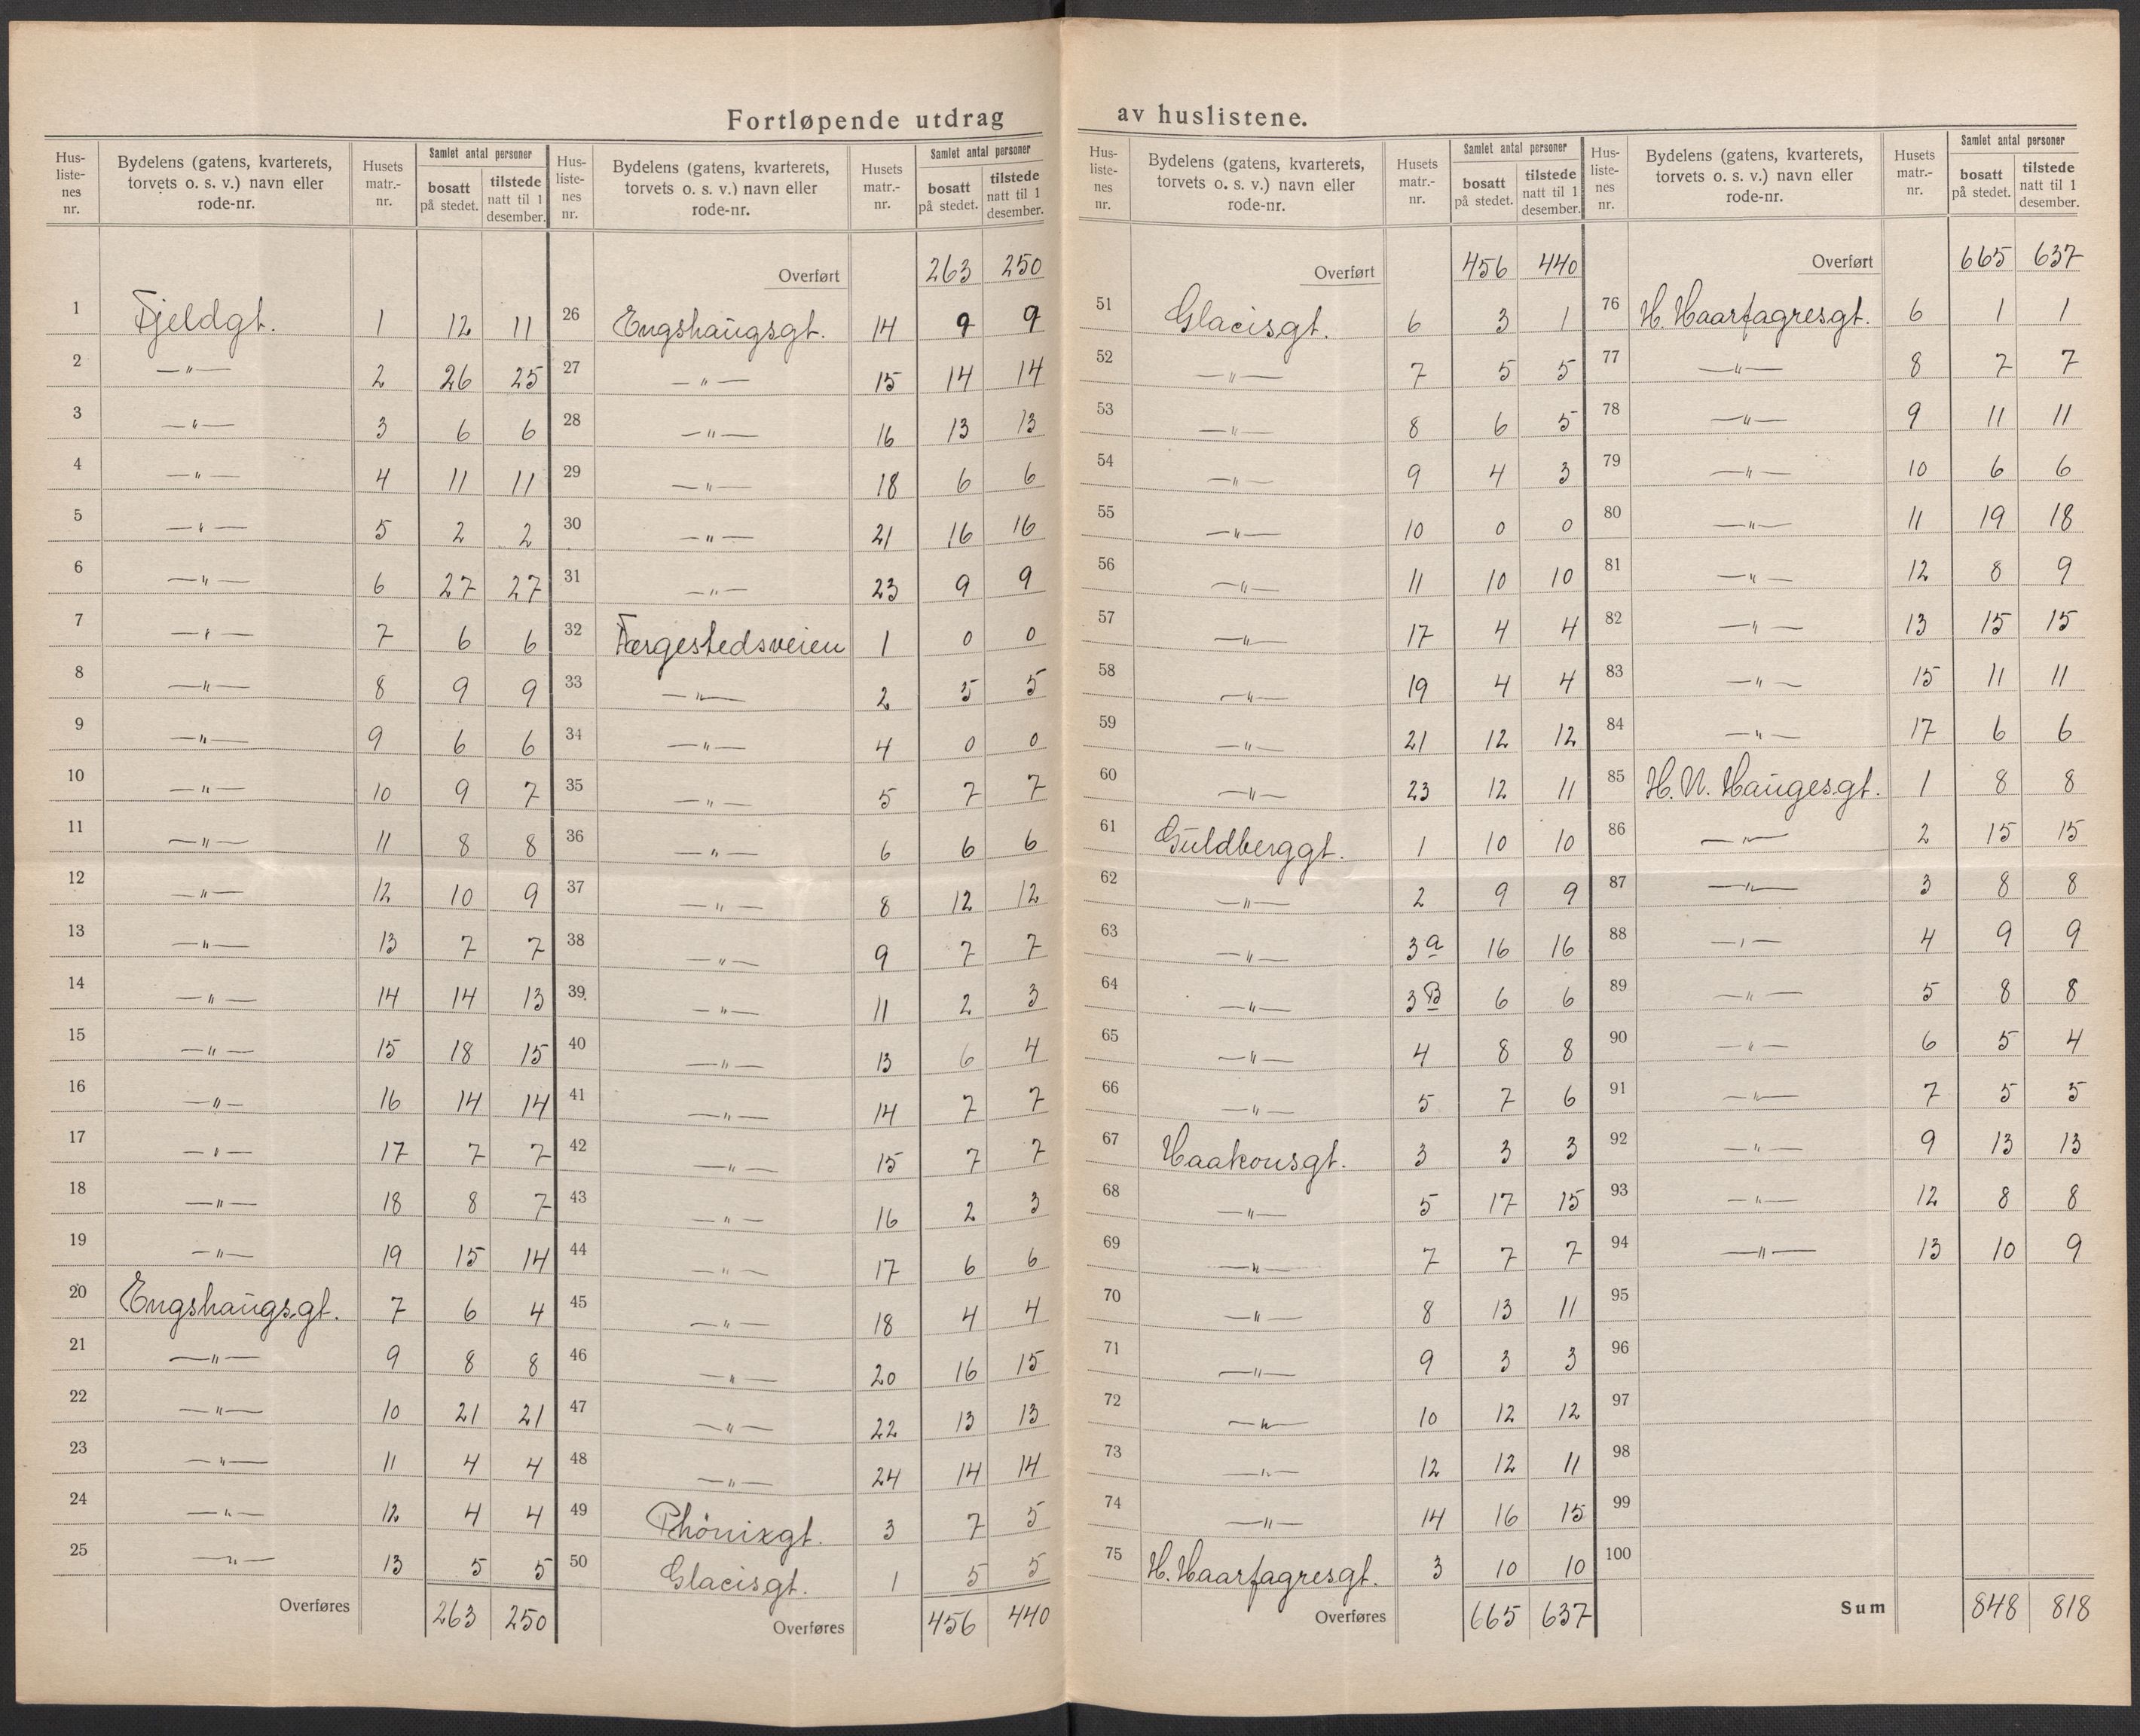 Fortløpende utdrag av huslistene.
Hus-liste-nes nr. | Bydelens (gatens, kvarterets, torvets o. s. v.) navn eller rode-nr. | Husets matr.-nr. | Samlet antal personer bosatt på stedet. | tilstede natt til 1 desember.
1 Fjeldgt. 1 12 11
2 —〃— 2 26 25
3 —〃— 3 6 6
4 —〃— 4 11 11
5 —〃— 5 2 2
6 —〃— 6 27 27
7 —〃— 7 6 6
8 —〃— 8 9 9
9 —〃— 9 6 6
10 —〃— 10 9 7
11 —〃— 11 8 8
12 —〃— 12 10 9
13 —〃— 13 7 7
14 —〃— 14 14 13
15 —〃— 15 18 15
16 —〃— 16 14 14
17 —〃— 17 7 7
18 —〃— 18 8 7
19 —〃— 19 15 14
20 Engshaugsgt. 7 6 4
21 —〃— 9 8 8
22 —〃— 10 21 21
23 —〃— 11 4 4
24 —〃— 12 4 4
25 —〃— 13 5 5
Overføres 263 250
Hus-liste-nes nr. | Bydelens (gatens, kvarterets, torvets o. s. v.) navn eller rode-nr. | Husets matr.-nr. | Samlet antal personer bosatt på stedet. | tilstede natt til 1 desember.
Overført 263 250
26 Engshaugsgt. 14 9 9
27 —〃— 15 14 14
28 —〃— 16 13 13
29 —〃— 18 6 6
30 —〃— 21 16 16
31 —〃— 23 9 9
32 Færgestedsveien 1 0 0
33 —〃— 2 5 5
34 —〃— 4 0 0
35 —〃— 5 7 7
36 —〃— 6 6 6
37 —〃— 8 12 12
38 —〃— 9 7 7
39 —〃— 11 2 3
40 —〃— 13 6 4
41 —〃— 14 7 7
42 —〃— 15 7 7
43 —〃— 16 2 3
44 —〃— 17 6 6
45 —〃— 18 4 4
46 —〃— 20 16 15
47 —〃— 22 13 13
48 —〃— 24 14 14
49 Phönixgt. 3 7 5
50 Glacisgt. 1 5 5
Overføres 456 440
Hus-liste-nes nr. | Bydelens (gatens, kvarterets, torvets o. s. v.) navn eller rode-nr. | Husets matr.-nr. | Samlet antal personer bosatt på stedet. | tilstede natt til 1 desember.
Overført 456 440
51 Glacisgt. 6 3 1
52 —〃— 7 5 5
53 —〃— 8 6 5
54 —〃— 9 4 3
55 —〃— 10 0 0
56 —〃— 11 10 10
57 —〃— 17 4 4
58 —〃— 19 4 4
59 —〃— 21 12 12
60 —〃— 23 12 11
61 Guldberggt. 1 10 10
62 —〃— 2 9 9
63 —〃— 3a 16 16
64 —〃— 3B 6 6
65 —〃— 4 8 8
66 —〃— 5 7 6
67 Haakonsgt. 3 3 3
68 —〃— 5 17 15
69 —〃— 7 7 7
70 —〃— 8 13 11
71 —〃— 9 3 3
72 —〃— 10 12 12
73 —〃— 12 12 11
74 —〃— 14 16 15
75 H. Haarfagresgt. 3 10 10
Overføres 665 637
Hus-liste-nes nr. | Bydelens (gatens, kvarterets, torvets o. s. v.) navn eller rode-nr. | Husets matr.-nr. | Samlet antal personer bosatt på stedet. | tilstede natt til 1 desember.
Overført 665 637
76 H. Haarfagresgt. 6 1 1
77 —〃— 8 7 7
78 —〃— 9 11 11
79 —〃— 10 6 6
80 —〃— 11 19 18
81 —〃— 12 8 9
82 —〃— 13 15 15
83 —〃— 15 11 11
84 —〃— 17 6 6
85 H. N. Haugesgt. 1 8 8
86 —〃— 2 15 15
87 —〃— 3 8 8
88 —〃— 4 9 9
89 —〃— 5 8 8
90 —〃— 6 5 4
91 —〃— 7 5 5
92 —〃— 9 13 13
93 —〃— 12 8 8
94 —〃— 13 10 9
95
96
97
98
99
100
Sum 848 818